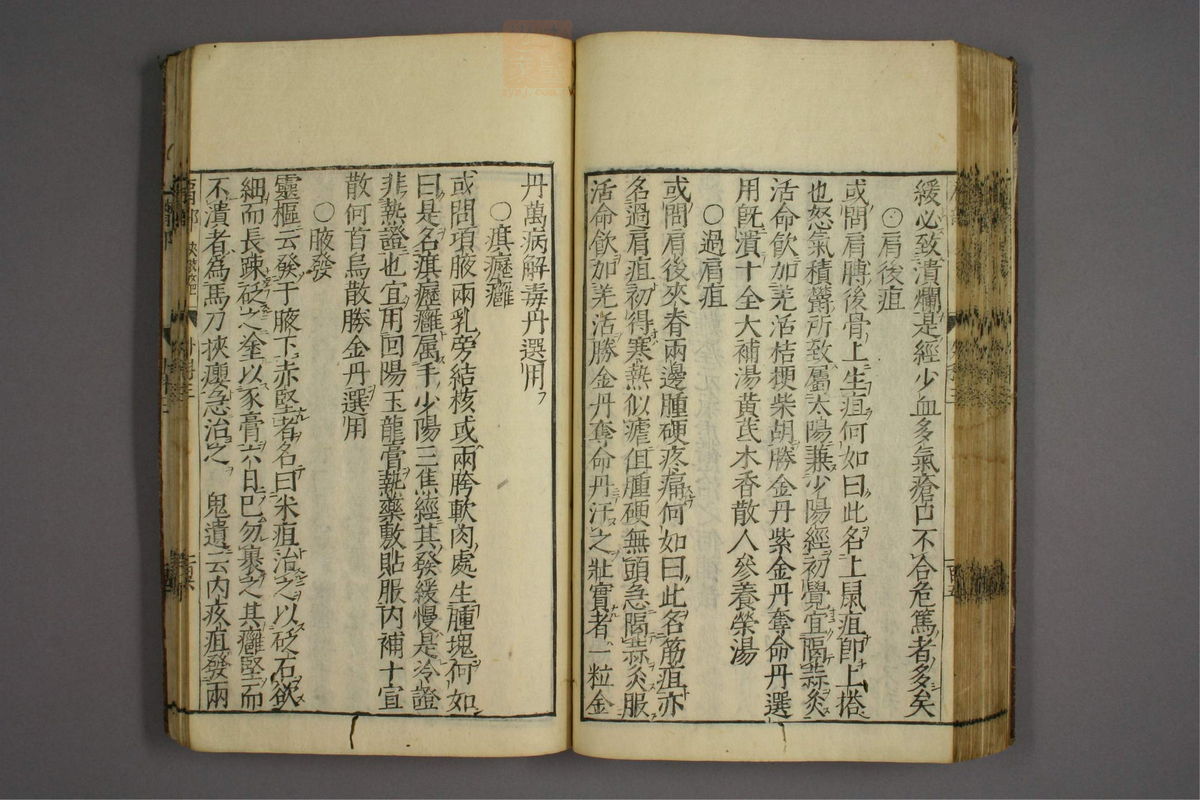 緩必致潰爛是經少血多氣瘡口不合危篤者多矣
○肩後疽
或問肩膊後骨上生疽何如曰此名上鼠疽卽上搭
也怒氣積鬱所致屬太陽兼少陽經初覺宜隔蒜灸
活命飲加羌活桔梗柴胡勝金丹紫金丹奪命丹選
用旣潰十全大補湯黃芪木香散人參養榮湯
○過肩疽
或問肩後來脊兩邊腫硬疼痛何如曰此名筋疽亦
名過肩疽初得寒熱似瘧但腫硬無頭急隔蒜灸服
活命飲加羌活勝金丹奪命丹汗之壯實者一粒金
丹萬病解毒丹選用
○㾷癧癰
或問項腋兩乳旁結核或兩胯軟肉處生腫塊何如
曰是名㾷癧癰属手少陽三焦經其發緩慢是冷證
非熱證也宜用回陽玉龍膏熱藥敷貼服内補十宣
散何首烏散勝金丹選用
○腋發
靈樞云發于腋下赤堅者名曰米疽治之以砭石欲
細而長踈砭之塗以豕膏六日已勿裹之其癰堅而
不潰者爲馬刀挾癭急治之 鬼遺云内疚疽發兩